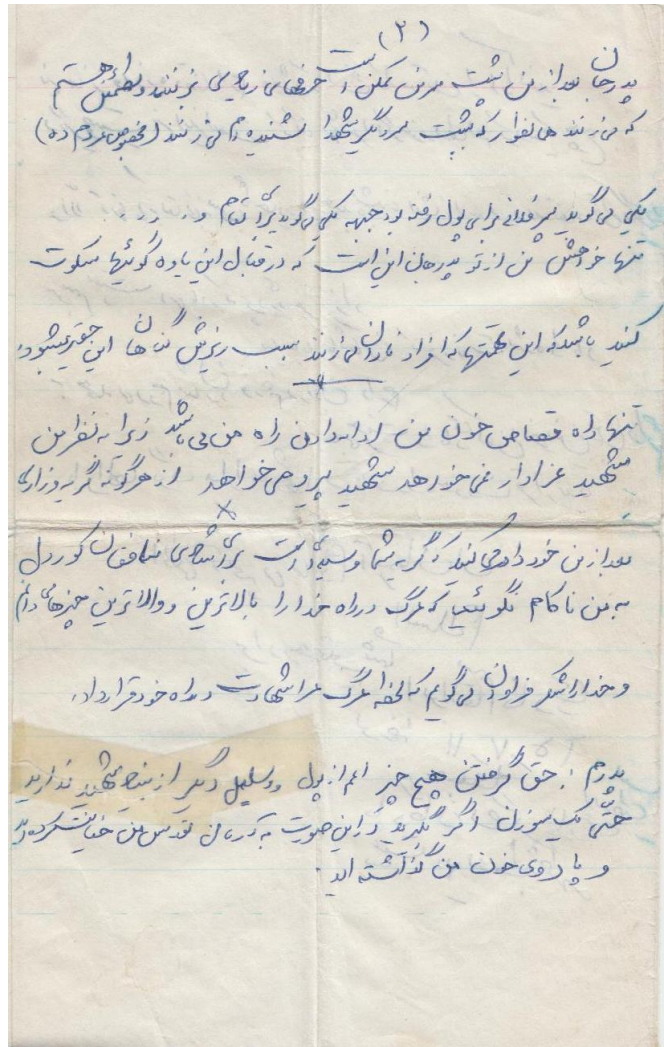 (۳)
پدرجان بعد از من پشت سر من ممکن است حرفهای زیادی بزنند و مطمئن هستم
که می زنند همانطور که پشت سر دیگر شهدا شنیده ام می زنند (مخصوص مردم ده)
یکی می گوید پسر فلانی برای پول رفته بود جبهه یکی می گوید برای مقام و
تنها خواهش من از تو پدرجان این است که در مقابل این یاوه گوئیها سکوت
کنید باشد که این تهمتها که افراد نادان می زنند سبب ریزش گناهان این حقیر میشود.
تنها راه قصاص خون من ادامه دادن راه من می باشد زیرا به نظر من
شهید عزادار نمی خواهد شهید پیرو می خواهد از هرگونه گریه و زاری
بعد از من خودداری کنید که گریه شما وسیله است برای شادی منافقان کوردل
به من ناکام نگوئید که مرگ در راه خدا را بالاترین و والاترین چیزها می دانم
و خدا را شکر فراوان می گویم که لحظه مرگ مرا شهادت در راه خود قرار داد.
پدرم : حق گرفتن هیچ چیز اعم از پول و وسایل دیگر از بنیاد شهید ندارید
حتی یک سوزن اگر بگیرید در این صورت به آرمان مقدس من خیانت کرده اید
و پا روی خون من گذاشته اید.